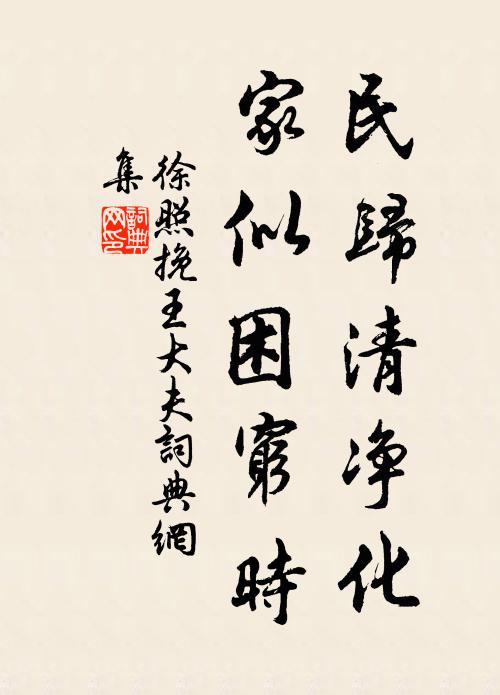 民歸清净化
家似困窮時
徐照挽王大夫詞典網
集
詞典網印